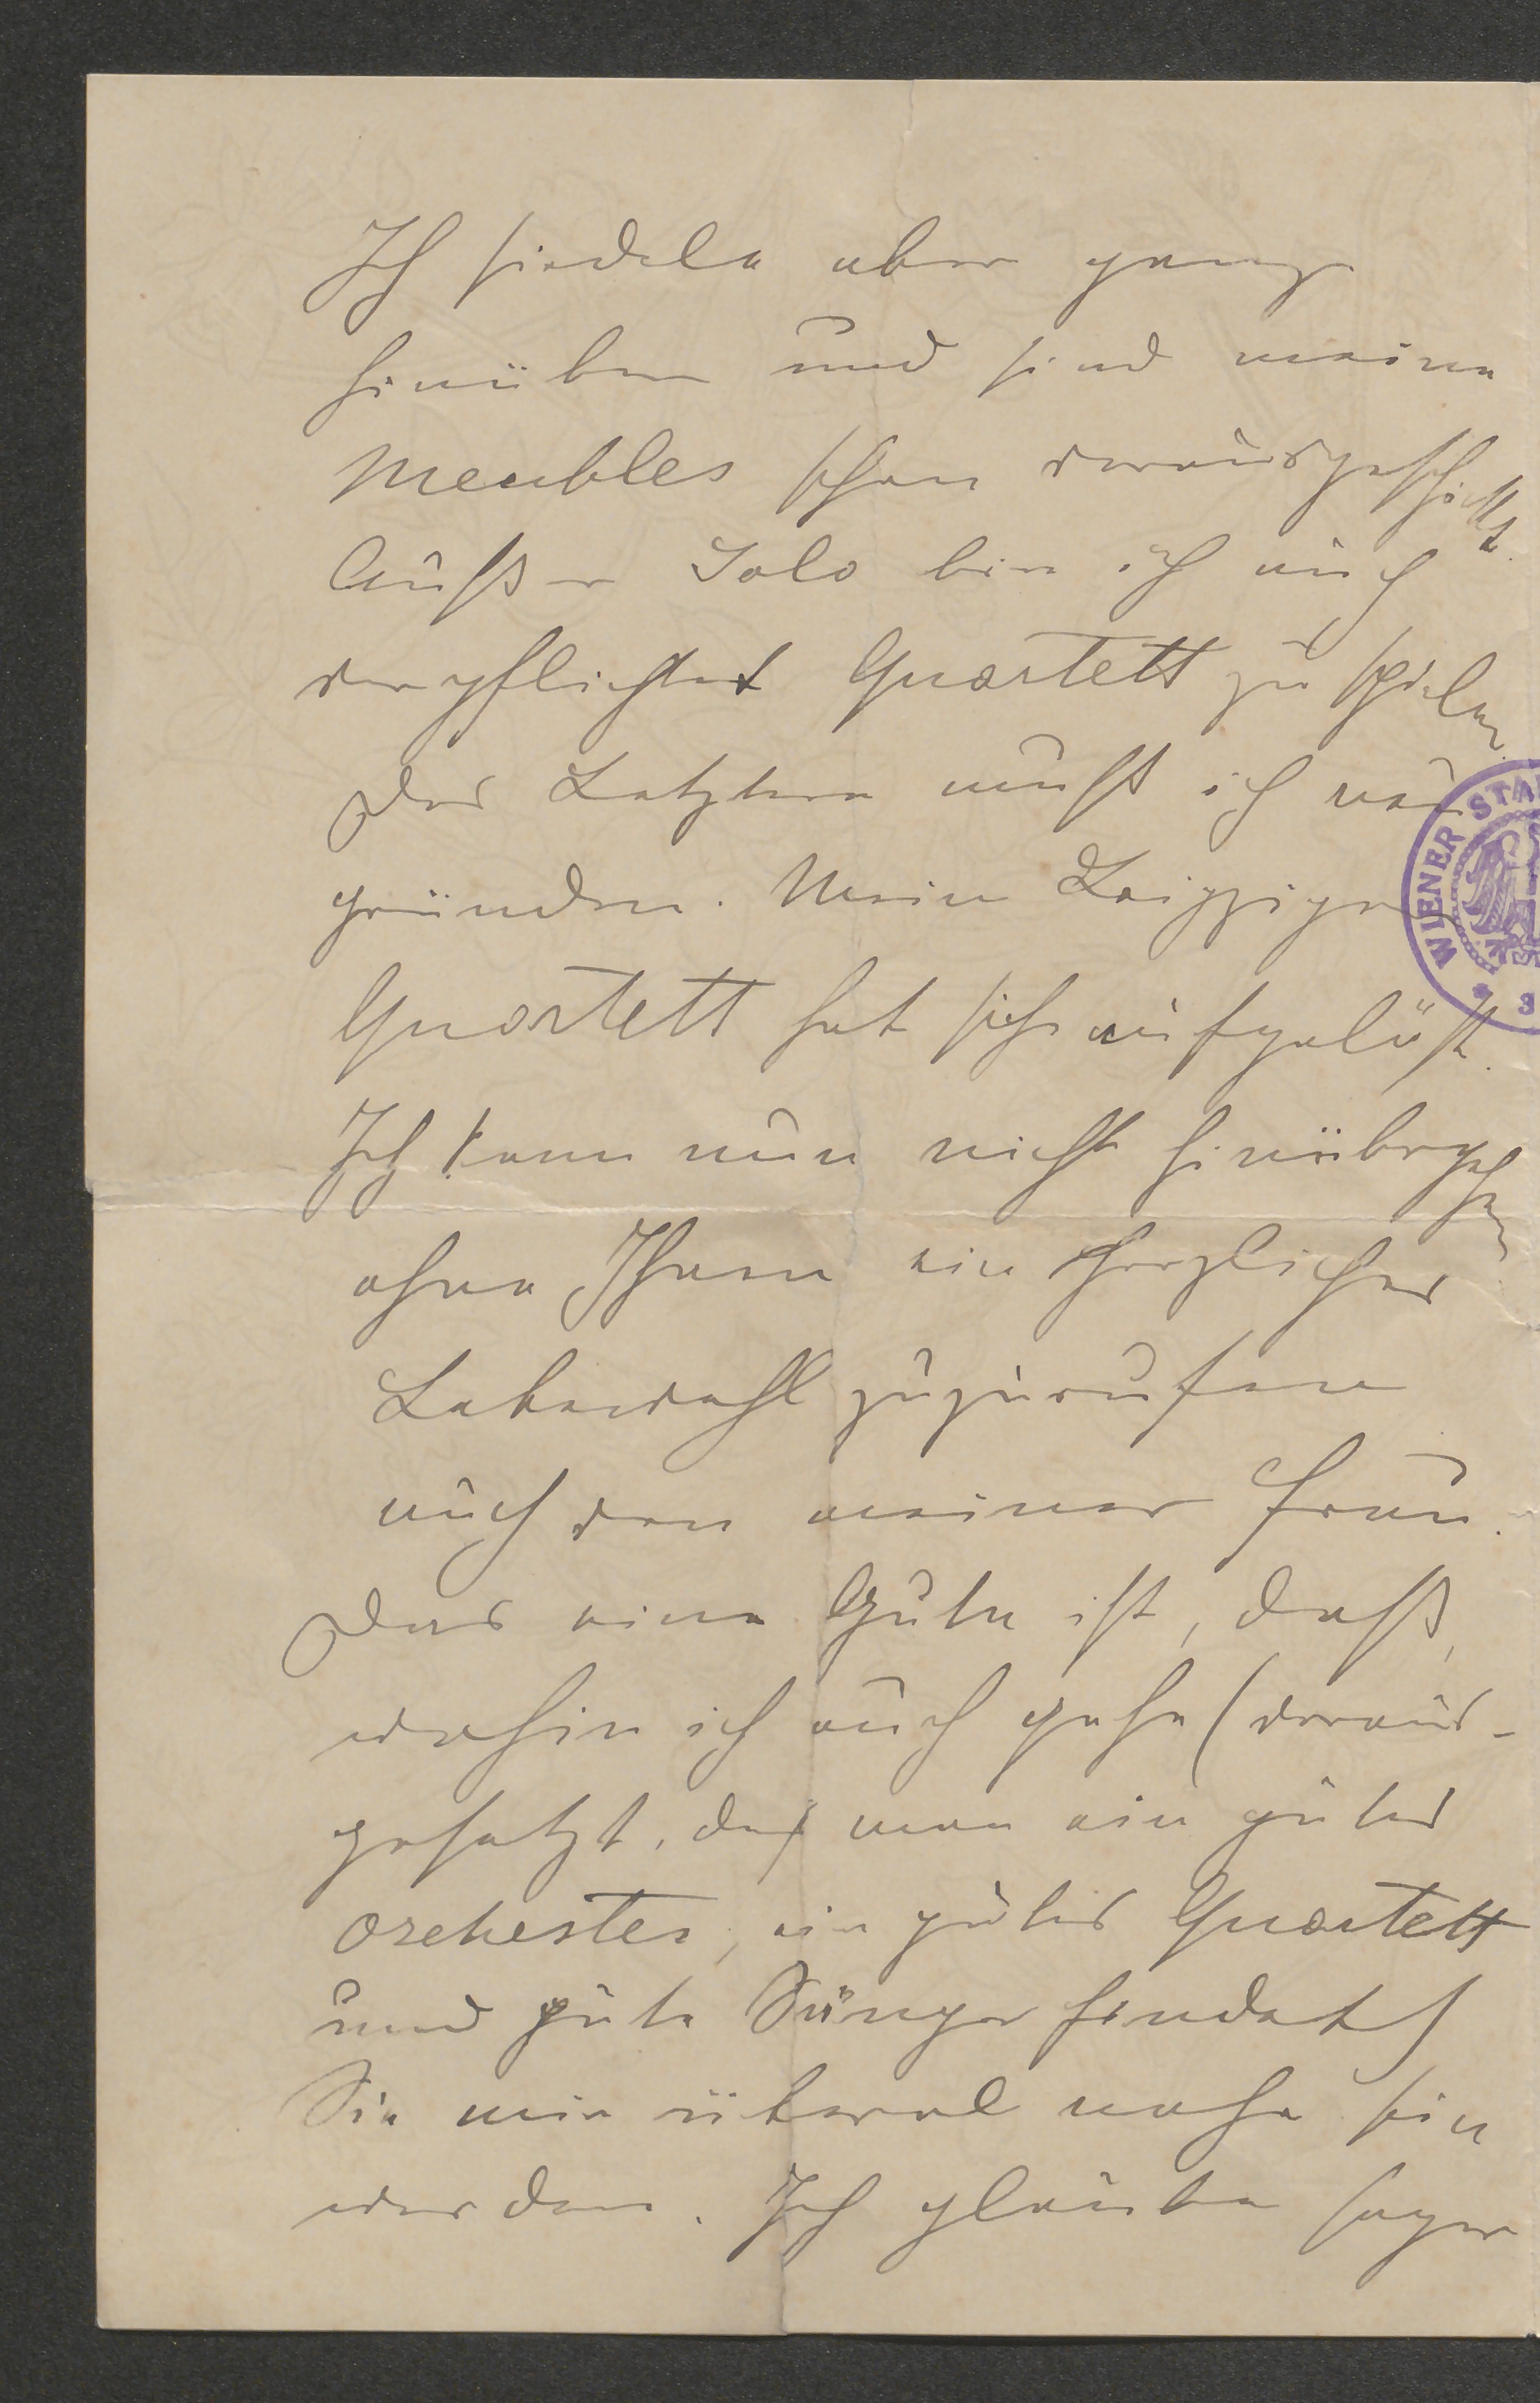 Ich siedele aber ganz
hinüber und sind meine
Meubles schon vorausgeschickt.
Außer Solo bin ich auch
verpflichtet Quartett zu spielen.
Das Letztere muß ich neu
gründen. Mein Leipziger
Quartett hat sich aufgelöst.
Ich kann nun nicht hinübergehen
ohne Ihnen ein herzliches
Lebewohl zuzurufen
auch von meiner Frau.
Das eine Gute ist, daß,
wohin ich auch gehe (voraus-
gesetzt, daß man ein gutes
Orchester, ein gutes Quartett
und gute Sänger findet)
Sie mir überal nahe sein
werden. Ich glaube sogar
WIENER STA